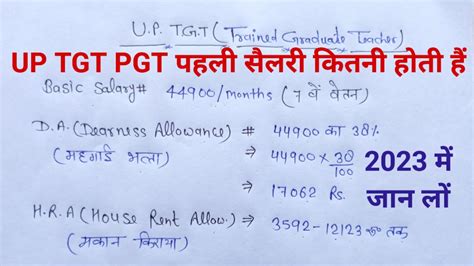 U.P. TGT (Trained Graduate Teacher)
UP TGT PGT पहली सैलरी कितनी होती हैं
Basic Salary# 44900/months (7 वें वेतन)
D.A. (Dearness Allowance) # 44900 का 38%
(महगाई भत्ता) → 44900 × 38/100
2023 में
⇒ 17062 Rs.
जान लों
H.R.A (House Rent Allow.) ⇒ 3592-12123 रू तक
(मकान किराया)